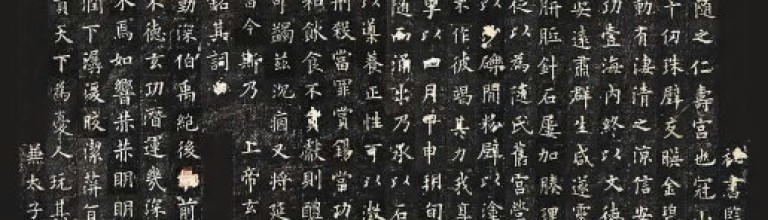 秘書監
隨之仁壽宮也冠
十仞珠璧交暎金碧
動有淒清之涼信安
功壹海內終以文德
矣遠肅群生咸遂靈
胼胝針石屢加腠理
從以為隨氏舊宮營
以沙礫間粉壁以塗
不作彼竭其力我享
以四月甲申朔旬
隨而涌出乃承以石
以導養正性可以澂
刑殺當罪賞錫當功
和飲食不貢獻則醴
可蠲茲沉痼又將延
當今斯乃 上帝玄
銘其詞曰
勳深伯禹絕後前
不德玄功潛運幾深
水焉如響赫赫明明
潤下潺湲皎潔萍旨
貴天下為憂人玩其
兼太子